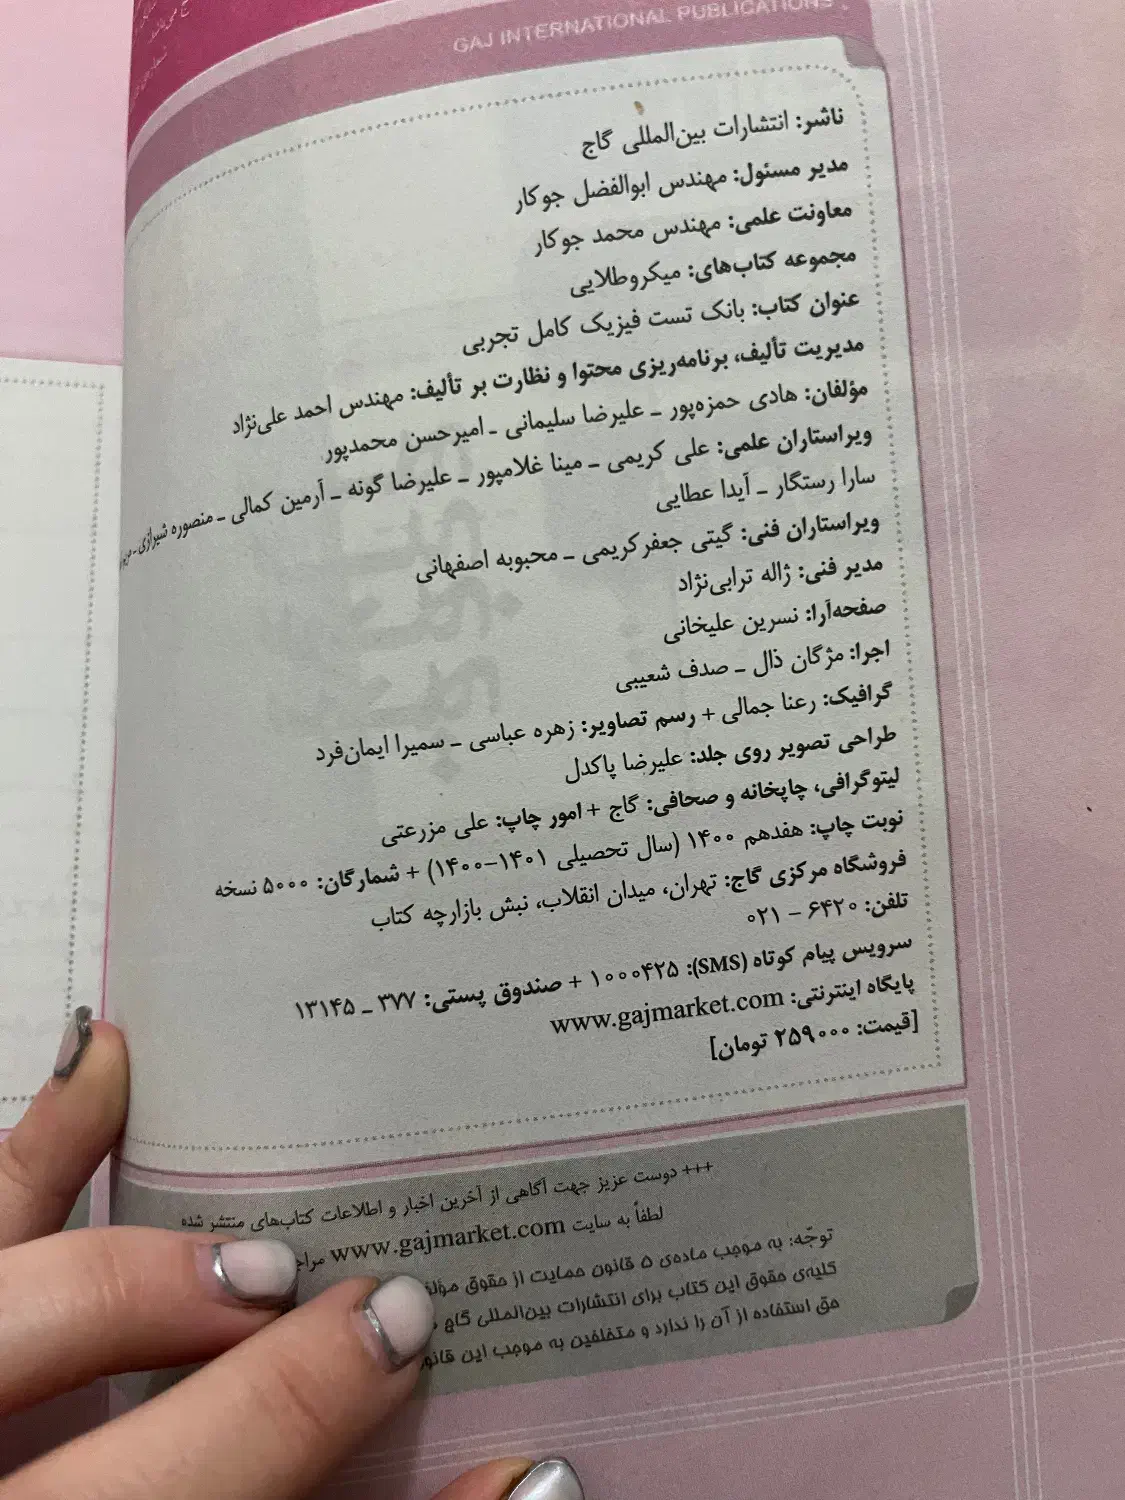 GAJ INTERNATIONAL PUBLICATIONS
ناشر: انتشارات بین‌المللی گاج
مدیر مسئول: مهندس ابوالفضل جوکار
معاونت علمی: مهندس محمد جوکار
مجموعه کتاب‌های: میکروطلایی
عنوان کتاب: بانک تست فیزیک کامل تجربی
مدیریت تألیف، برنامه‌ریزی محتوا و نظارت بر تألیف: مهندس احمد علی‌نژاد
مؤلفان: هادی حمزه‌پور ـ علیرضا سلیمانی ـ امیرحسن محمدپور
ویراستاران علمی: علی کریمی ـ مینا غلامپور ـ علیرضا گونه ـ آرمین کمالی ـ منصوره شیرازی ـ
سارا رستگار ـ آیدا عطایی
ویراستاران فنی: گیتی جعفرکریمی ـ محبوبه اصفهانی
مدیر فنی: ژاله ترابی‌نژاد
صفحه‌آرا: نسرین علیخانی
اجرا: مژگان ذال ـ صدف شعیبی
گرافیک: رعنا جمالی + رسم تصاویر: زهره عباسی ـ سمیرا ایمان‌فرد
طراحی تصویر روی جلد: علیرضا پاکدل
لیتوگرافی، چاپخانه و صحافی: گاج + امور چاپ: علی مزرعتی
نوبت چاپ: هفدهم ۱۴۰۰ (سال تحصیلی ۱۴۰۱-۱۴۰۰) + شمارگان: ۵۰۰۰ نسخه
فروشگاه مرکزی گاج: تهران، میدان انقلاب، نبش بازارچه کتاب
تلفن: ۶۴۲۰ - ۰۲۱
سرویس پیام کوتاه (SMS): ۱۰۰۰۴۲۵ + صندوق پستی: ۳۷۷ ـ ۱۳۱۴۵
پایگاه اینترنتی: www.gajmarket.com
[قیمت: ۲۵۹۰۰۰ تومان]
+++ دوست عزیز جهت آگاهی از آخرین اخبار و اطلاعات کتاب‌های منتشر شده
لطفاً به سایت www.gajmarket.com
توجّه: به موجب ماده‌ی ۵ قانون حمایت از حقوق
کلیه‌ی حقوق این کتاب برای انتشارات بین‌المللی گاج
حق استفاده از آن را ندارد و متخلفین به موجب این